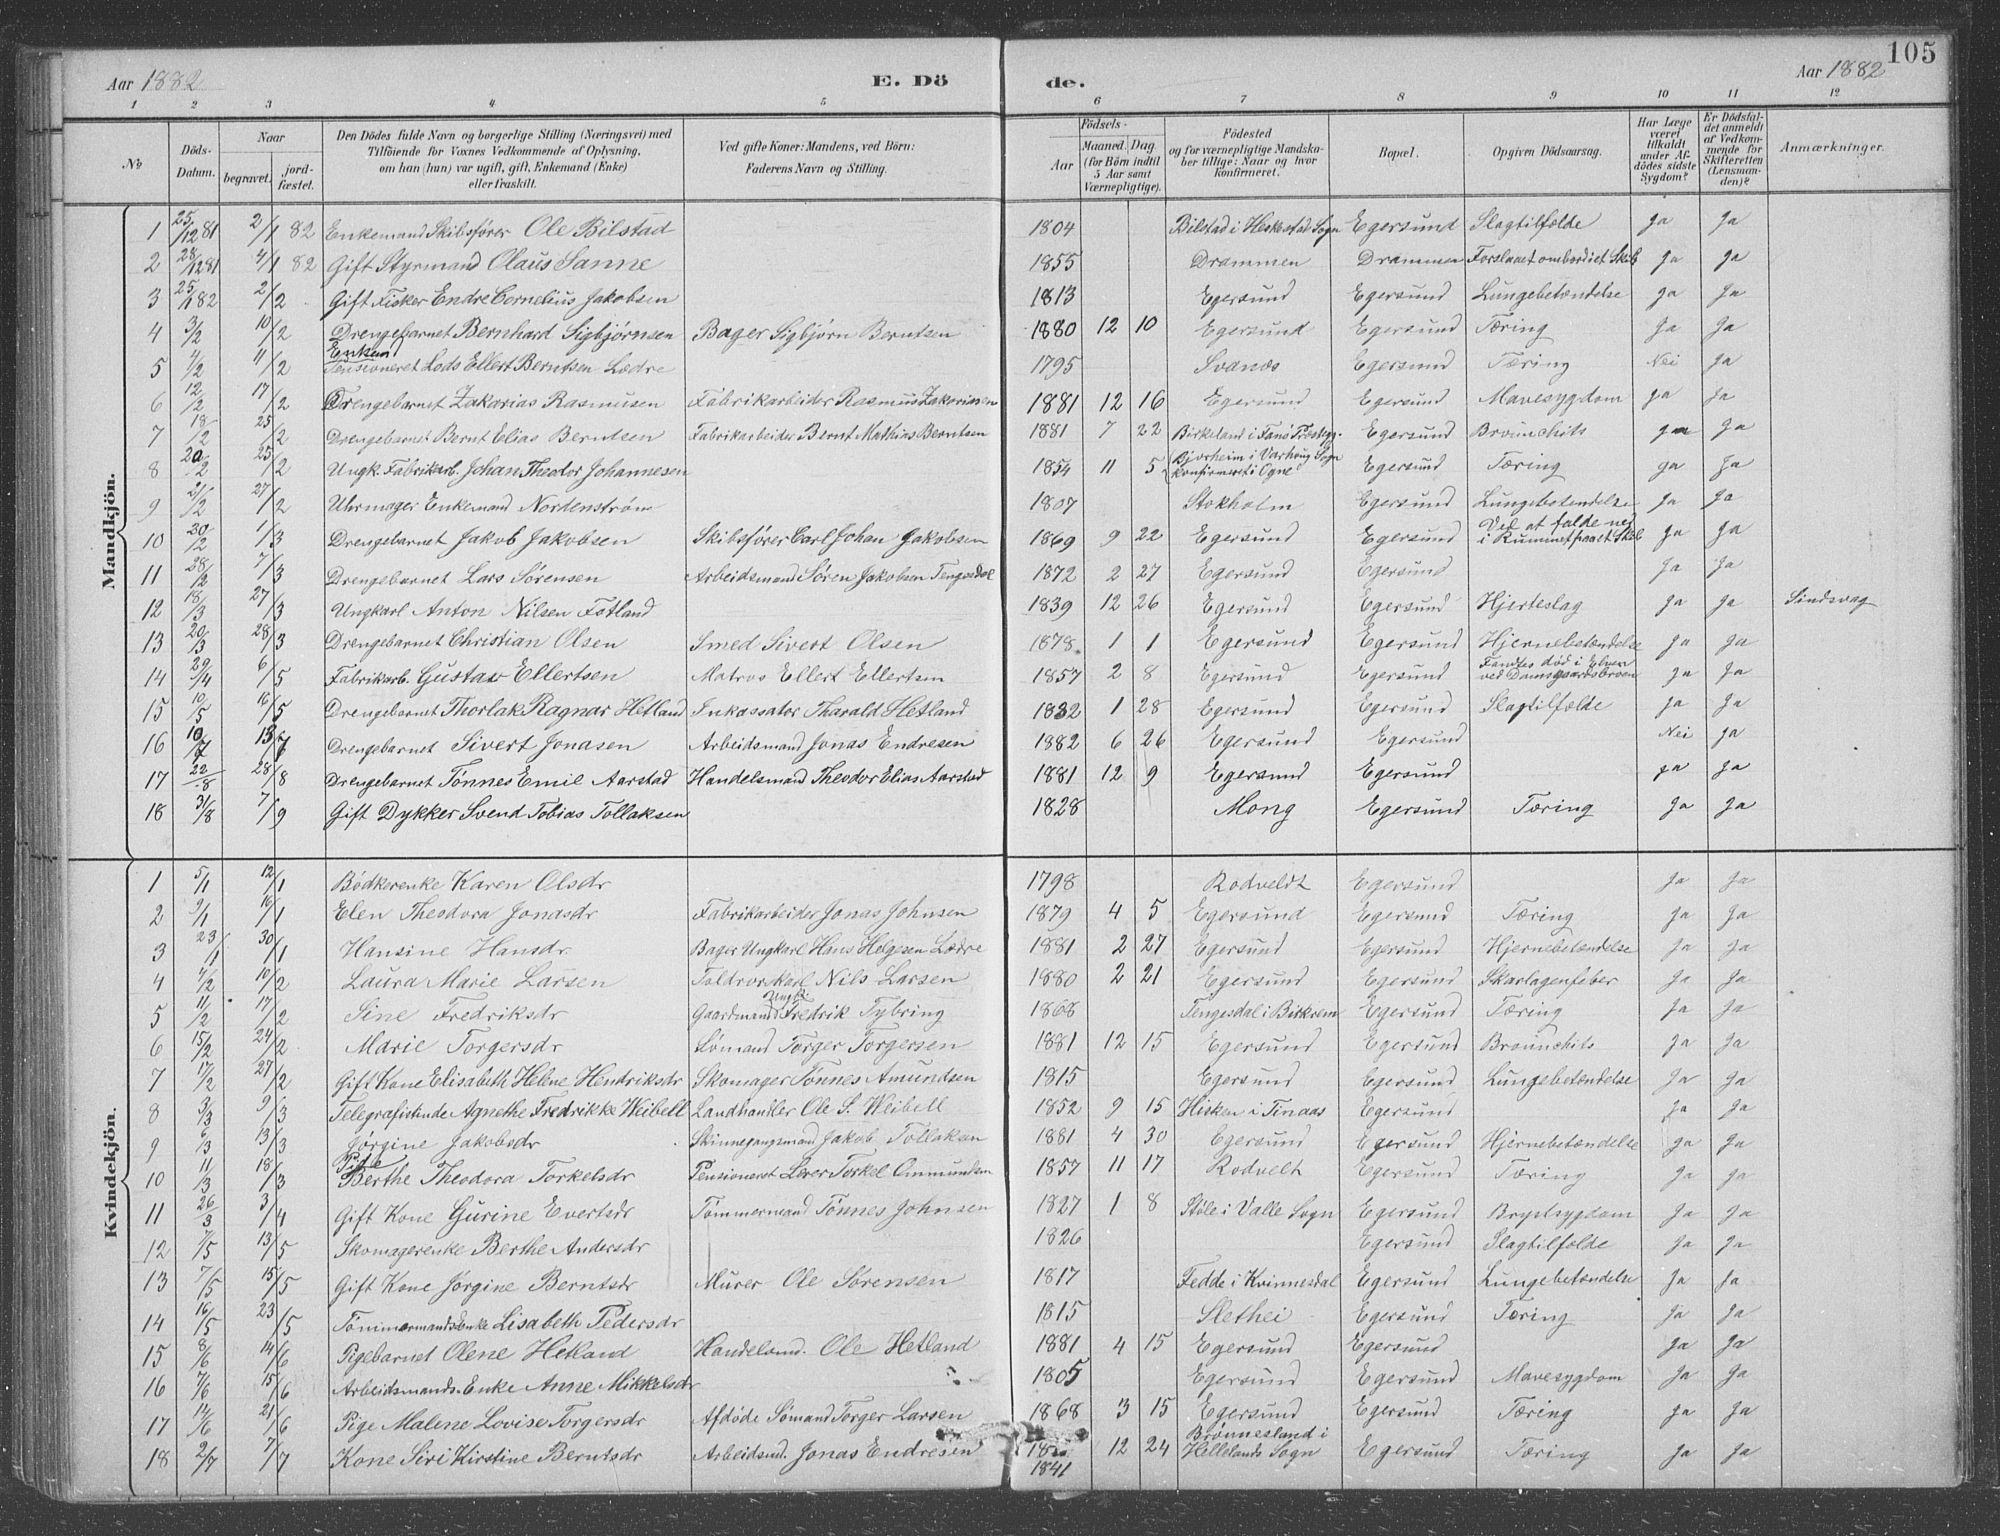 105
Aar 1882 E. Dö de. Aar 1882
1 2 3 4 5 6 7 8 9 10 11 12
№ Döds-Datum. Naar begravet. jordfæstet. Den Dödes fulde Navn og borgerlige Stilling (Næringsvei) med Tilföiende for Voxnes Vedkommende af Oplysning, om han (hun) var ugift, gift, Enkemand (Enke) eller fraskilt. Ved gifte Koner: Mandens, ved Börn: Faderens Navn og Stilling. Födsels- Aar Maaned. Dag. (for Börn indtil 5 Aar samt Værnepligtige). Födested og for værnepligtige Mandskaber tillige: Naar og hvor konfirmeret. Bopæl. Opgiven Dödsaarsag. Har Læge været tilkaldt under Afdödes sidste Sygdom? Er Dödsfaldet anmeldt af Vedkommende for Skifteretten (Lensmanden)? Anmærkninger.
Mandkjön.
1 25/12 81 2/1 82 Enkemand Skibsfører Ole Bilstad 1804 Bilstad i Heskestad Sogn Egersund Slagtilfælde Ja Ja
2 28/12 81 4/1 82 Gift Styrmand Olaus Sanne 1855 Drammen Drammen Forslaaet ombord i et Skib Ja Ja
3 25/1 82 2/2 Gift Fisker Endre Cornelius Jakobsen 1813 Egersund Egersund Lungebetændelse Ja Ja
4 3/2 10/2 Drengebarnet Bernhard Sigbjørnsen Bager Sigbjørn Berntsen 1880 12 10 Egersund Egersund Tæring Ja Ja
5 /2 4/2 Enkem Pensioneret Lods Ellert Berntsen Lædre 1795 Svanæs Egersund Tæring Nei Ja
6 12/2 17/2 Drengebarnet Zakarias Rasmusen Fabrikarbeider Rasmus Zakariasen 1881 12 16 Egersund Egersund Mavesygdom Ja Ja
7 18/2 25/2 Drengebarnet Bernt Elias Berntsen Fabrikarbeider Bernt Mathias Berntsen 1881 7 22 Birkeland i Egersund Brounchits Ja Ja
8 20/2 25/2 Ungk. Fabrikarb. Johan Theodor Johannesen 1854 11 5 Bjorheim i Varhoug Sogn konfirmeret i Ogne Egersund Tæring Ja Ja
9 21/2 27/2 Uhrmager Enkemand Nordenstrøm 1807 Stokholm Egersund Lungebetendelse Ja Ja
10 20/2 1/3 Drengebarnet Jakob Jakobsen Skibsfører Carl Johan Jakobsen 1869 9 22 Egersund Egersund Ved at falde ned i Rummet paa et Skib Ja Ja
11 28/2 7/3 Drengebarnet Lars Sørensen Arbeidsmand Søren Jakobsen Tengesdal 1872 2 27 Egersund Egersund Ja Ja
12 18/3 27/3 Ungkarl Anton Nilsen Fotland 1839 12 26 Egersund Egersund Hjerteslag Ja Ja Sindsvag
13 20/3 28/3 Drengebarnet Christian Olsen Smed Sivert Olsen 1878 1 1 Egersund Egersund Hjernebetændelse Ja Ja
14 29/4 6/5 Fabrikarb. Gustav Ellertsen Matros Ellert Ellertsen 1857 2 8 Egersund Egersund Fandtes død i Elven ved Damsgaardsbroen Ja Ja
15 10/5 16/5 Drengebarnet Thorlak Ragnar Hetland Inkassator Tharald Hetland 1882 1 28 Egersund Egersund Slagtilfælde Ja Ja
16 10/7 13/7 Drengebarnet Sivert Jonasen Arbeidsmand Jonas Endresen 1882 6 26 Egersund Egersund Nei Ja
17 22/8 28/8 Drengebarnet Tønnes Emil Aarstad Handelsmand Theodor Elias Aarstad 1881 12 9 Egersund Egersund Ja Ja
18 31/8 7/9 Gift Dykker Svend Tobias Tollaksen 1828 Mong Egersund Tæring Ja Ja
Kvindekjön.
1 5/1 12/1 Bødkerenke Karen Olsdr 1798 Rodveldt Egersund Ja Ja
2 9/1 16/1 Elen Theodora Jonasdr Fabrikarbeider Jonas Johnsen 1879 4 5 Egersund Egersund Tæring Ja Ja
3 23/1 30/1 Hansine Hansdr Bager Ungkarl Hans Helgesen Lædre 1881 2 27 Egersund Egersund Hjernebetændelse Ja Ja
4 4/2 10/2 Laura Marie Larsen Toldrorkarl Nils Larsen 1880 2 21 Egersund Egersund Skarlagenfeber Ja Ja
5 11/2 17/2 Sine Fredriksdr Gaardmand Ungk. Fredrik Tybring 1868 Tengesdal i Birkrem Egersund Tæring Ja Ja
6 15/2 24/2 Marie Torgersdr Sømand Torger Torgersen 1881 12 15 Egersund Egersund Brounchits Ja Ja
7 17/2 27/2 Gift Kone Elisabeth Helene Hendriksdr Skomager Tønnes Amundsen 1815 Egersund Egersund Lungebetændelse Ja Ja
8 3/3 9/3 Telegrafistinde Agnethe Fredrikke Weibell Landhandler Ole S. Weibell 1852 9 15 Hisken i Finaas Egersund Ja Ja
9 6/3 13/3 Jørgine Jakobsdr Skinnegangsmand Jakob Tollaksen 1881 4 30 Egersund Egersund Hjernebetændelse Ja Ja
10 11/3 18/3 Pige Berthe Theodora Torkelsdr Pensioneret Torkel Ommundsen 1857 11 17 Rodvelt Egersund Tæring Ja Ja
11 26/3 3/4 Gift Kone Gurine Evertsdr Tømmermand Tønnes Johnsen 1827 1 8 Støle i Valle Sogn Egersund Brystsygdom Ja Ja
12 7/5 13/5 Skomagerenke Berthe Andersdr 1826 Egersund Slagtilfælde Ja Ja
13 7/5 15/5 Gift Kone Jørgine Berntsdr Murer Ole Sørensen 1817 Fedde i Kvinnesdal Egersund Lungebetændelse Ja Ja
14 16/5 23/5 Tømmermandsenke Lisabeth Pedersdr 1815 Slethei Egersund Tæring Ja Ja
15 8/6 14/6 Pigebarnet Olene Hetland Handelsmd. Ole Hetland 1881 4 15 Egersund Egersund Ja Ja
16 7/6 15/6 Arbeidsmands. Enke Anne Mikkelsdr 1805 Egersund Egersund Mavesygdom Ja Ja
17 14/6 21/6 Pige Malene Lovise Torgersdr Afdöde Sømand Torger Larsen 1868 3 15 Egersund Egersund Tæring Ja Ja
18 2/7 7/7 Kone Siri Kirstine Berntsdr Arbeidsmd. Jonas Endresen 1841 12 24 Brønnesland i Hellelands Sogn Egersund Tæring Ja Ja